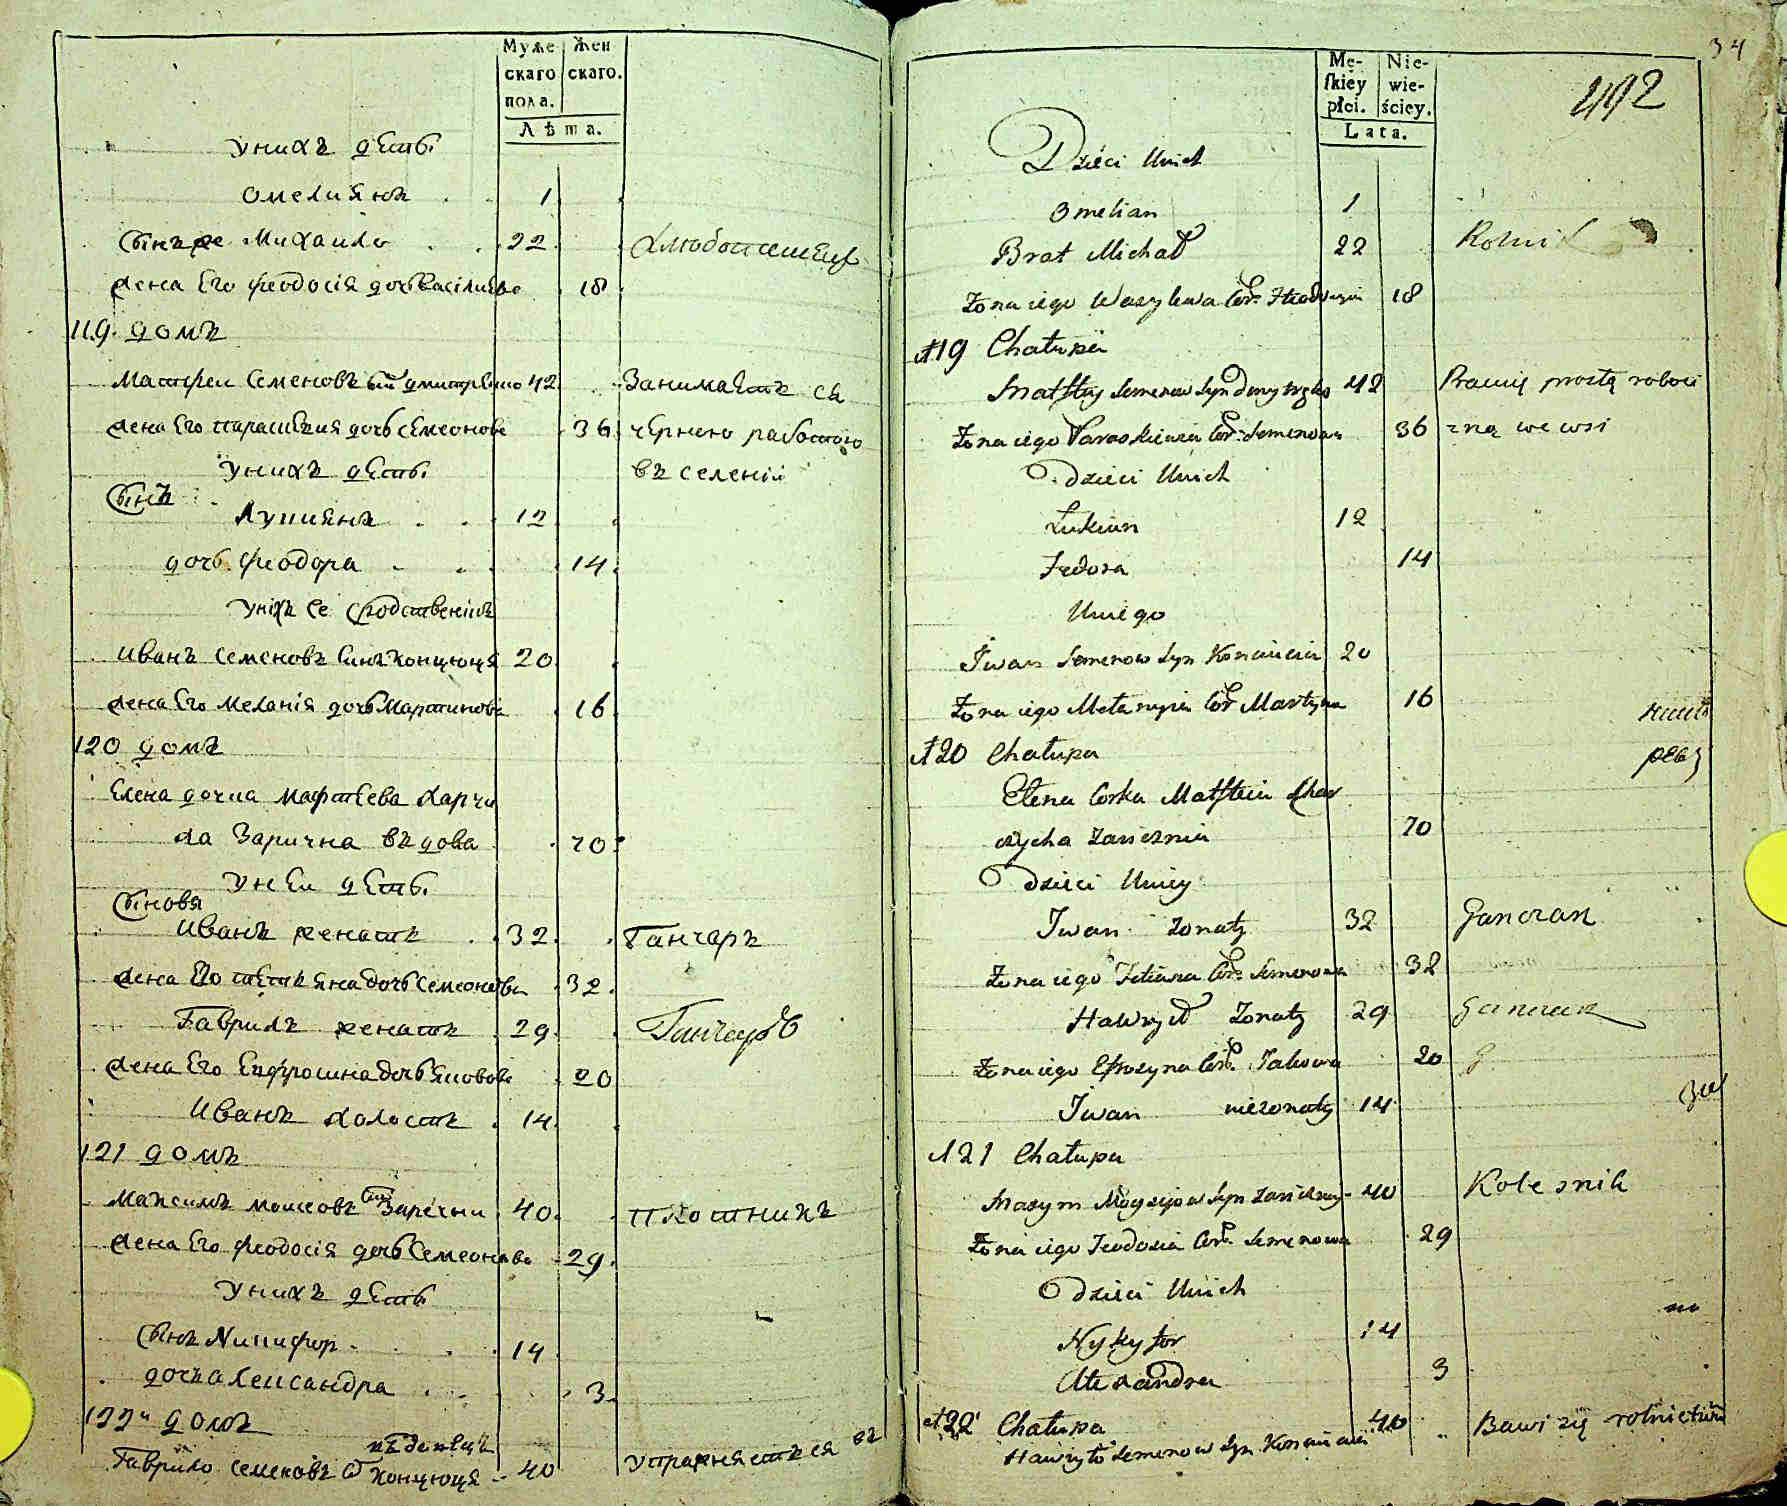 Муже
скаго
пола.
Жен
скаго.
Лѣта.
унихъ дѣти
Омелиянъ 1
Сынъ же Михаило 22
жена Его Феодосія дочъ Васілиева 18
119. домъ
Матфеи Семеновъ 42 Занимаетъ ся
жена Его Параскевия дочъ Семеонова 36 чернею работою
унихъ дѣти въ селеніи
Сынъ
Лукиянъ 12
дочъ Феодора 14
Иванъ Семеновъ Синъ Концюця 20
жена Его Меланія дочъ Мартинова 16
120 домъ
Елена дочка Матфеева Харчи
ха Заричная въдова 70
унеи дѣти
Сынове
Иванъ женатъ 32 Ганчаръ
жена Его Тетияна дочъ Семеонова 32
Гаврилъ женатъ 29 Ганчаръ
жена Его Ефросина дочъ Яковова 20
Иванъ холостъ 14
121 домъ
Максимъ Моисеовъ Син Заречни 40 плотникъ
жена Его Феодосія дочъ Семеонова 29
унихъ дѣти
Сынъ Никифор 14
дочъ Александра 3
122й домъ
Гаврило Семеновъ С Концюця 40 упражняетъся въ
34
492
Mę-
skiey
płci.
Nie-
wie-
ściey.
Lata.
Dzieci Unich
Omelian 1
Brat Michał 22 Rolnik
Żona iego Wasylewa Cor. 18
119 Chałupa
Matfiy Semenow Syn Dmytryka 42 Pracuię prostą roboci
Żona iego Paraskiewia Cor. Semenowa 36 zną we wsi
Dzieci Unich
Łukian 12
Fedora 14
Uniego
Iwan Semenow Syn Konciucia 20
Żona iego Mełanyia Cor Martyna 16
120 Chałupa
Elena Corka Matfieia Char
czycha Zariczna 70
Dzieci Uniey
Iwan Żonaty 32 Ganczar
Żona iego Tetiana Cor. Semenowa 32
Hawrył Żonaty 29 Ganczar
Żona iego Efrozyna Cor. Jakowa 20
Iwan nieżonaty 14
121 Chałupa
Maxym Moyzyiow Syn Zariczny 40 Kołesnik
Żona iego Teodozia Cor. Semenowa 29
Dzieci Unich
Nykyfor 14
Alexandra 3
122 Chałupa
Hawryło Semenow Syn Konciucia 40 Bawi się rolnictwem